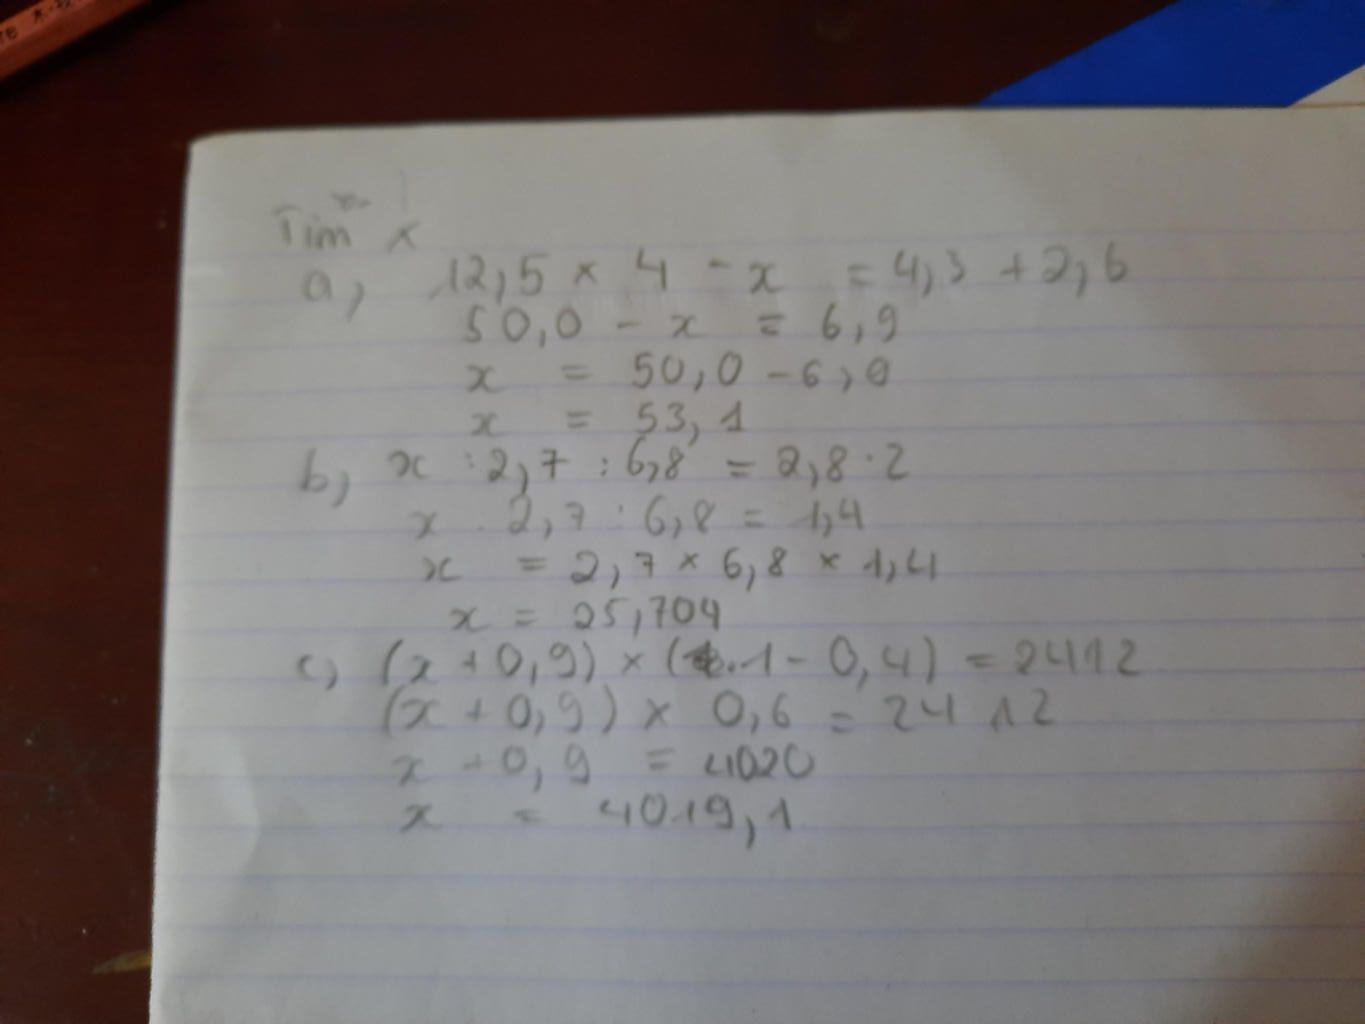 Tìm x
a, 12,5 × 4 - x = 4,3 + 2,6
50,0 - x = 6,9
x = 50,0 - 6,9
x = 53,1
b, x : 2,7 : 6,8 = 2,8 : 2
x : 2,7 : 6,8 = 1,4
x = 2,7 × 6,8 × 1,4
x = 25,704
c, (x + 0,9) × (1 - 0,4) = 2412
(x + 0,9) × 0,6 = 2412
x + 0,9 = 4020
x = 4019,1